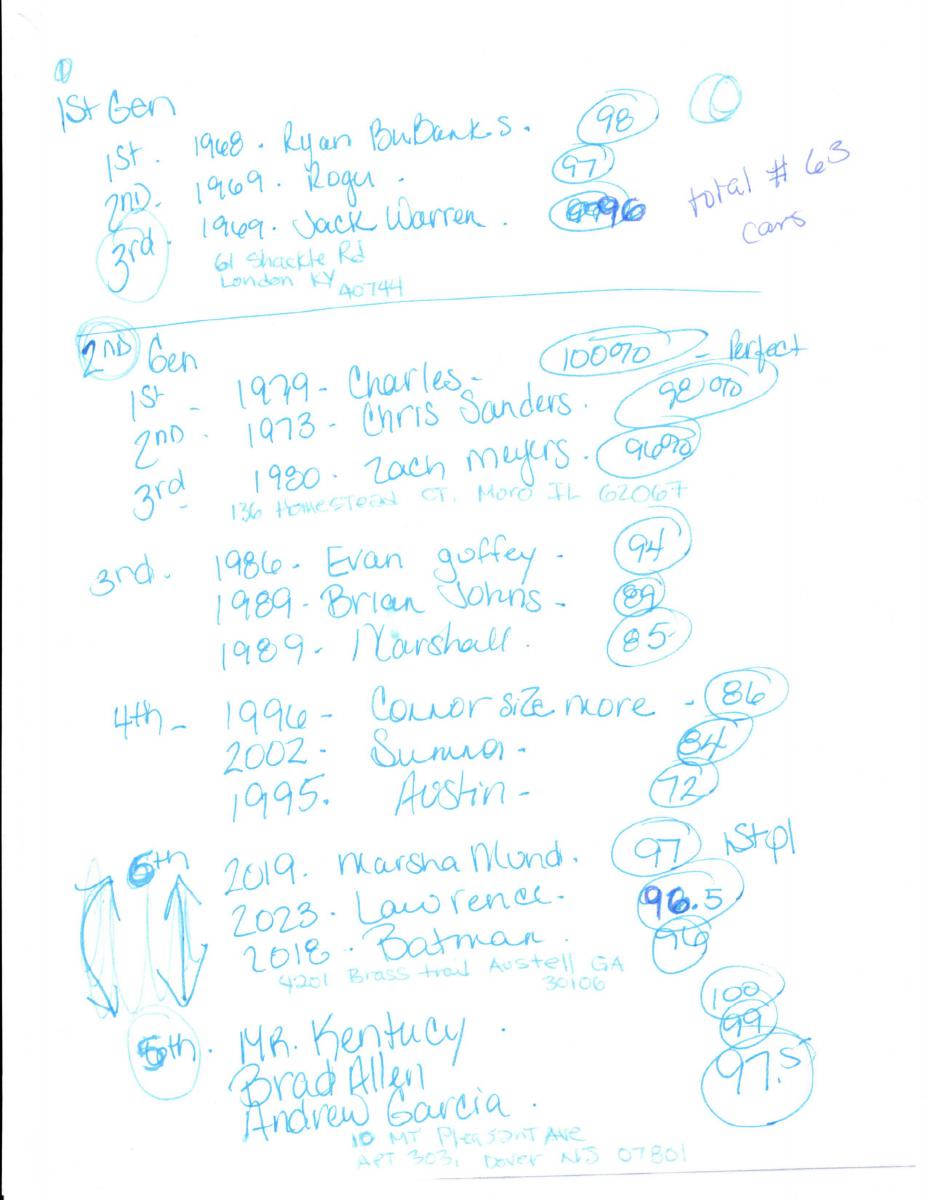 1
1st Gen
1st. 1968. Ryan BuBanks. 98
2ND. 1969. Rogu. 97
3rd. 1969. Jack Warren. 96
total # 63
cars
61 Shackle Rd
London KY 40744
2ND Gen
1st - 1979 - Charles - 100% - Perfect
2ND. 1973 - Chris Sanders. 98%
3rd - 1980. Zach Meyers. 96%
136 Homestead CT. Moro IL 62067
3nd. 1986. Evan guffey - 94
1989 - Brian Johns - 89
1989 - Marshall. 85
4th - 1996 - Connor size more - 86
2002 - 84
1995. Austin - 72
2019. Marsha Mund. 97 1st pl
2023. Lawrence. 96.5
2018. Batman. 96
4201 Brass trail Austell GA
30106
MR. Kentucy. 100
Brad Allen 99
Andrew Garcia. 97.5
10 MT Pleasant Ave
APT 303, Dover NJ 07801